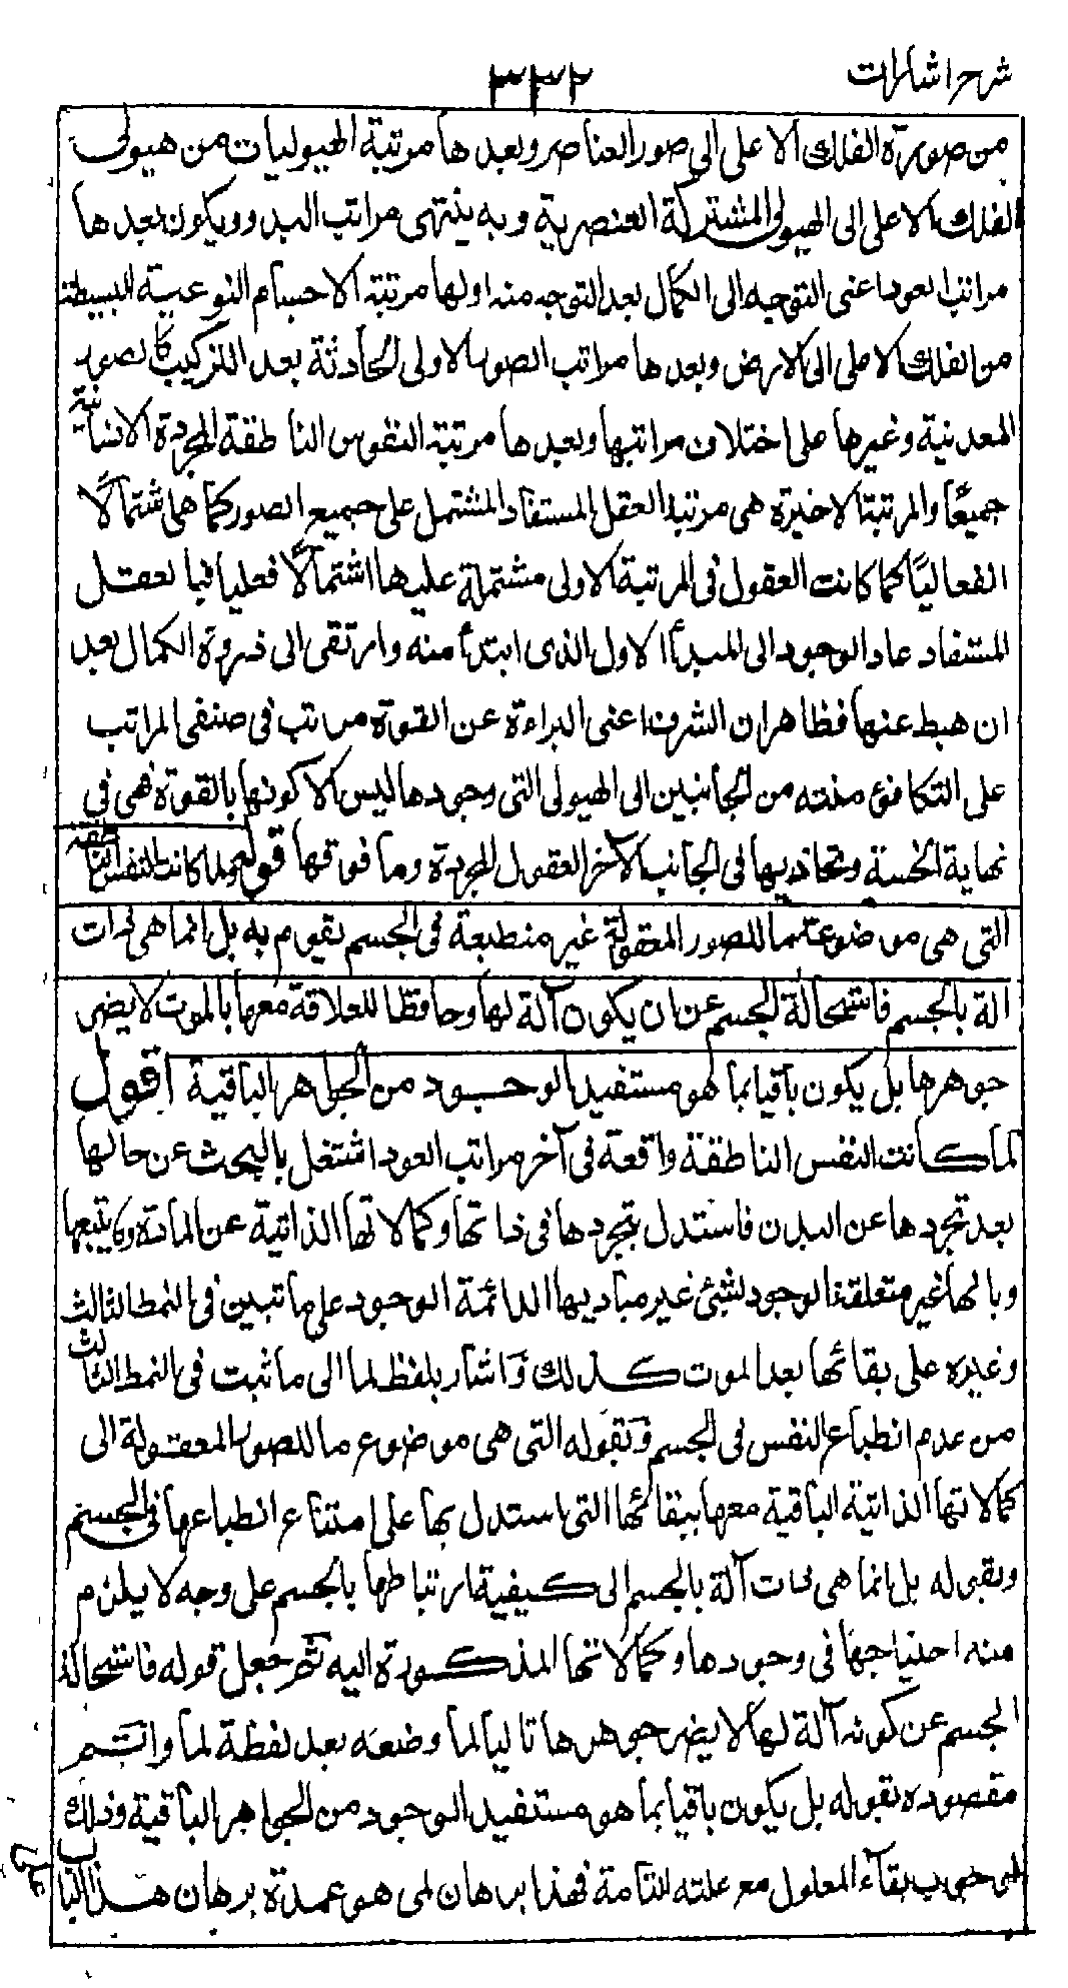 شرح اشارات
٣٣٢
من صورة الفلك الاعلى الى صور العناصر وبعدها مرتبة الهيوليات من هيولى
الفلك الاعلى الى الهيولى المشتركة العنصرية وبه ينتهى مراتب البدو ويكون بعدها
مراتب العود اعنى التوجه الى الكمال بعد التوجه منه اولها مرتبة الاجسام النوعية البسيطة
من الفلك الاعلى الى الارض وبعدها مراتب الصور الاولى الحادثة بعد التركيب كالصور
المعدنية وغيرها على اختلاف مراتبها وبعدها مرتبة النفوس الناطقة المجردة الانسانية
جميعًا والمرتبة الاخيرة هى مرتبة العقل المستفاد المشتمل على جميع الصور كما هى اشتمالًا
انفعاليًا كما كانت العقول فى المرتبة الاولى مشتملة عليها اشتمالًا فعليا فبالعقل
المستفاد عاد الوجود الى المبدأ الاول الذى ابتدأ منه وارتقى الى ذروة الكمال بعد
ان هبط عنها فظاهر ان الشرف اعنى البراءة عن القوة مرتب فى صنفى المراتب
على التكافوء منته من الجانبين الى الهيولى التى وجودها ليس الا كونها بالقوة فهى فى
نهاية الخسة وتحاذيها فى الجانب الآخر العقول المجردة وما فوقها قوله ولما كانت النفس الناطقة
التى هى موضوعة ما للصور المعقولة غير منطبعة فى الجسم يقوم به بل انما هى ذات
الة بالجسم فاستحالة الجسم عن ان يكون آلة لها وحافظا للعلاقة معها بالموت لا يضر
جوهرها بل يكون باقيا بما هو مستفيد الوجود من الجواهر الباقية اقول
لما كانت النفس الناطقة واقعة فى آخر مراتب العود اشتغل بالبحث عن حالها
بعد تجردها عن البدن فاستدل بتجردها فى ذاتها وكمالاتها الذاتية عن المادة وما يتبعها
وبانها غير متعلقة الوجود لشئ غير مباديها الدائمة الوجود على ما تبين فى النمط الثالث
وغيره على بقائها بعد الموت كذلك وَاشار بلفظ لما الى ما ثبت فى النمط الثالث
من عدم انطباع النفس فى الجسم وَبقوله التى هى موضوع ما للصور المعقولة الى
كمالاتها الذاتية الباقية معها ببقائها التى استدل بها على امتناع انطباعها فى الجسم
وبقوله بل انما هى ذات آلة بالجسم الى كيفية ارتباطها بالجسم على وجه لا يلزم
منه احتياجها فى وجودها وكمالاتها المذكورة اليه ثم جعل قوله فاستحالة
الجسم عن كونه آلة لها لا يضر جوهرها تاليا لما وضعه بعد لفظة لما واتم
مقصوده بقوله بل يكون باقيا بما هو مستفيد الوجود من الجواهر الباقية وذلك
لوجوب بقآء المعلول مع علته التامة فهذا برهان لمى هو عمدة برهان هذا الباب
على